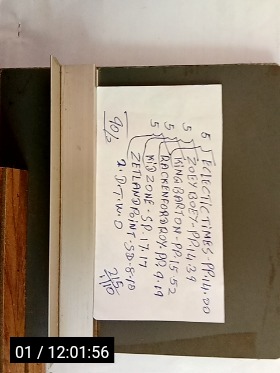 5 ECLECTIC TIMES PP. 14.00
5 ZOEY BOEY - PP. 14.39
5 KING BARTON - PP. 15.52
5 RACKENFORD ROY - PP. 9.19
KID ZONE - SP. 17.17
ZETLAND POINT - SD. 8.10
2. D. T. W. O
90/2
01 / 12:01:56